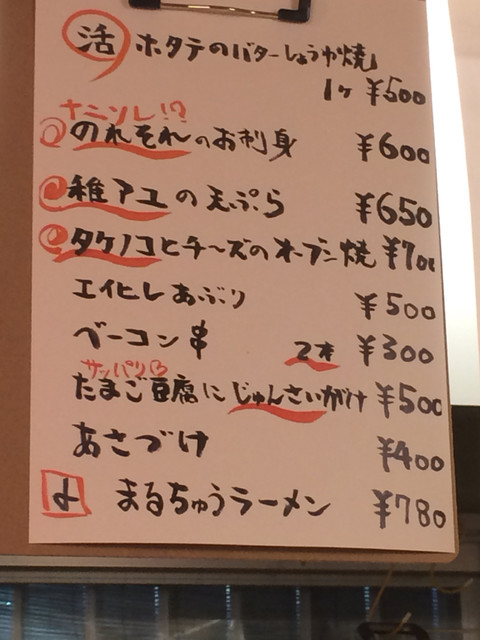 活 ホタテのバターしょうゆ焼
1ヶ ¥500
ナニソレ!?
のれそれのお刺身 ¥600
稚アユの天ぷら ¥650
タケノコとチーズのオーブン焼 ¥700
エイヒレあぶり ¥500
ベーコン串 2本 ¥300
サッパリ
たまご豆腐にじゅんさいがけ ¥500
あさづけ ¥400
よ まるちゅうラーメン ¥780